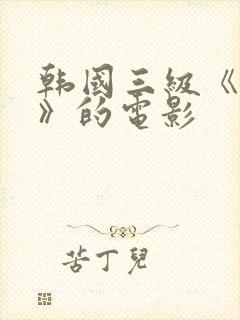 韩國三級《
》的電影
苦丁兒